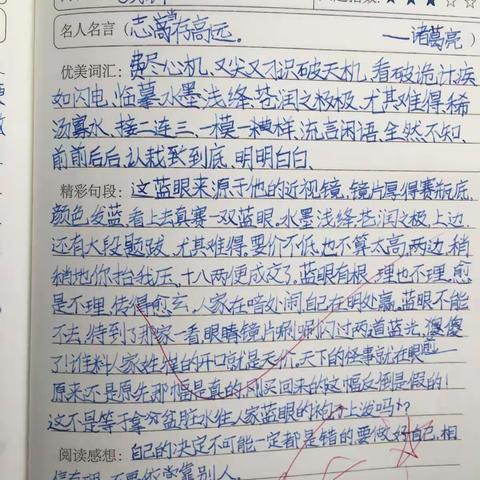 名人名言（志当存高远。——诸葛亮）
优美词汇：费尽心机、又尖又刁、识破天机、看破诡计、疾
如闪电、临摹、水墨浅绛、苍润之极极、尤其难得、稀
汤寡水、接二连三、一模一样、流言闲语、全然不知、
前前后后、认栽到底、明明白白、
精彩句段：这蓝眼来源于他的近视镜，镜片厚得赛瓶底，
颜色发蓝，看上去真赛一双蓝眼。水墨浅绛，苍润之极，上边
还有大段题跋，尤其难得。要价不低，也不算太高，两边稍
稍地你抬我压，十八两便成交了。蓝眼自根理也不理，愈
是不理，传得愈玄。人家在暗处闹，自己在明处赢。蓝眼不能
不去，待到了那家一看，眼睛镜片刷刷闪过两道蓝光，傻
了！谁料人家姓崔的开口就是天价。天下的怪事就在眼前
原来还是原先那幅是真的，刚买回来的这幅反倒是假的！
这不是等于拿分盆脏水往人家蓝眼的袍子上泼吗？
阅读感想：自己的决定不可能一定都是错的要做好自己，相
信自己，不要依赏靠别人。